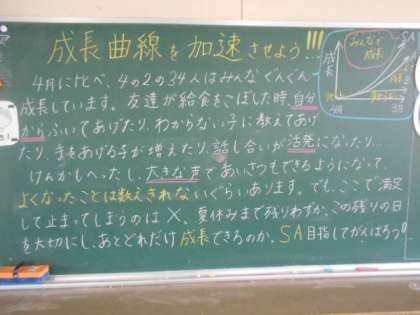 成長曲線を加速させよう!!!
4月に比べ、4の2の34人はみんなぐんぐん
成長しています。友達が給食をこぼした時、自分
からふいてあげたり、わからない子に教えてあげ
たり、手をあげる子が増えたり、話し合いが活発になったり…
けんかもへったし、大きな声であいさつもできるようになって、
よくなったことは数えきれないぐらいあります。でも、ここで満足
して止まってしまうのは×、夏休みまで残りわずか、この残りの日
を大切にし、あとどれだけ成長できるのか、SA目指してがんばろう!
SA
みんなで
成長
成長
4月
3月